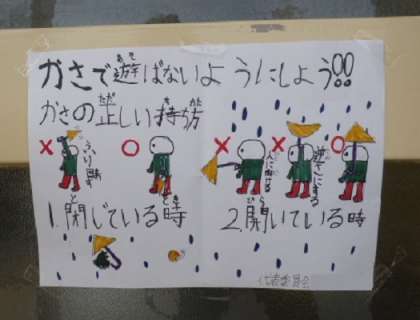 かさで遊ばないようにしよう!!
かさの正しい持ち方
× ふり回す ○
× 人に向ける × 逆さにする ○
1.閉じている時
2.開いている時
代表委員会